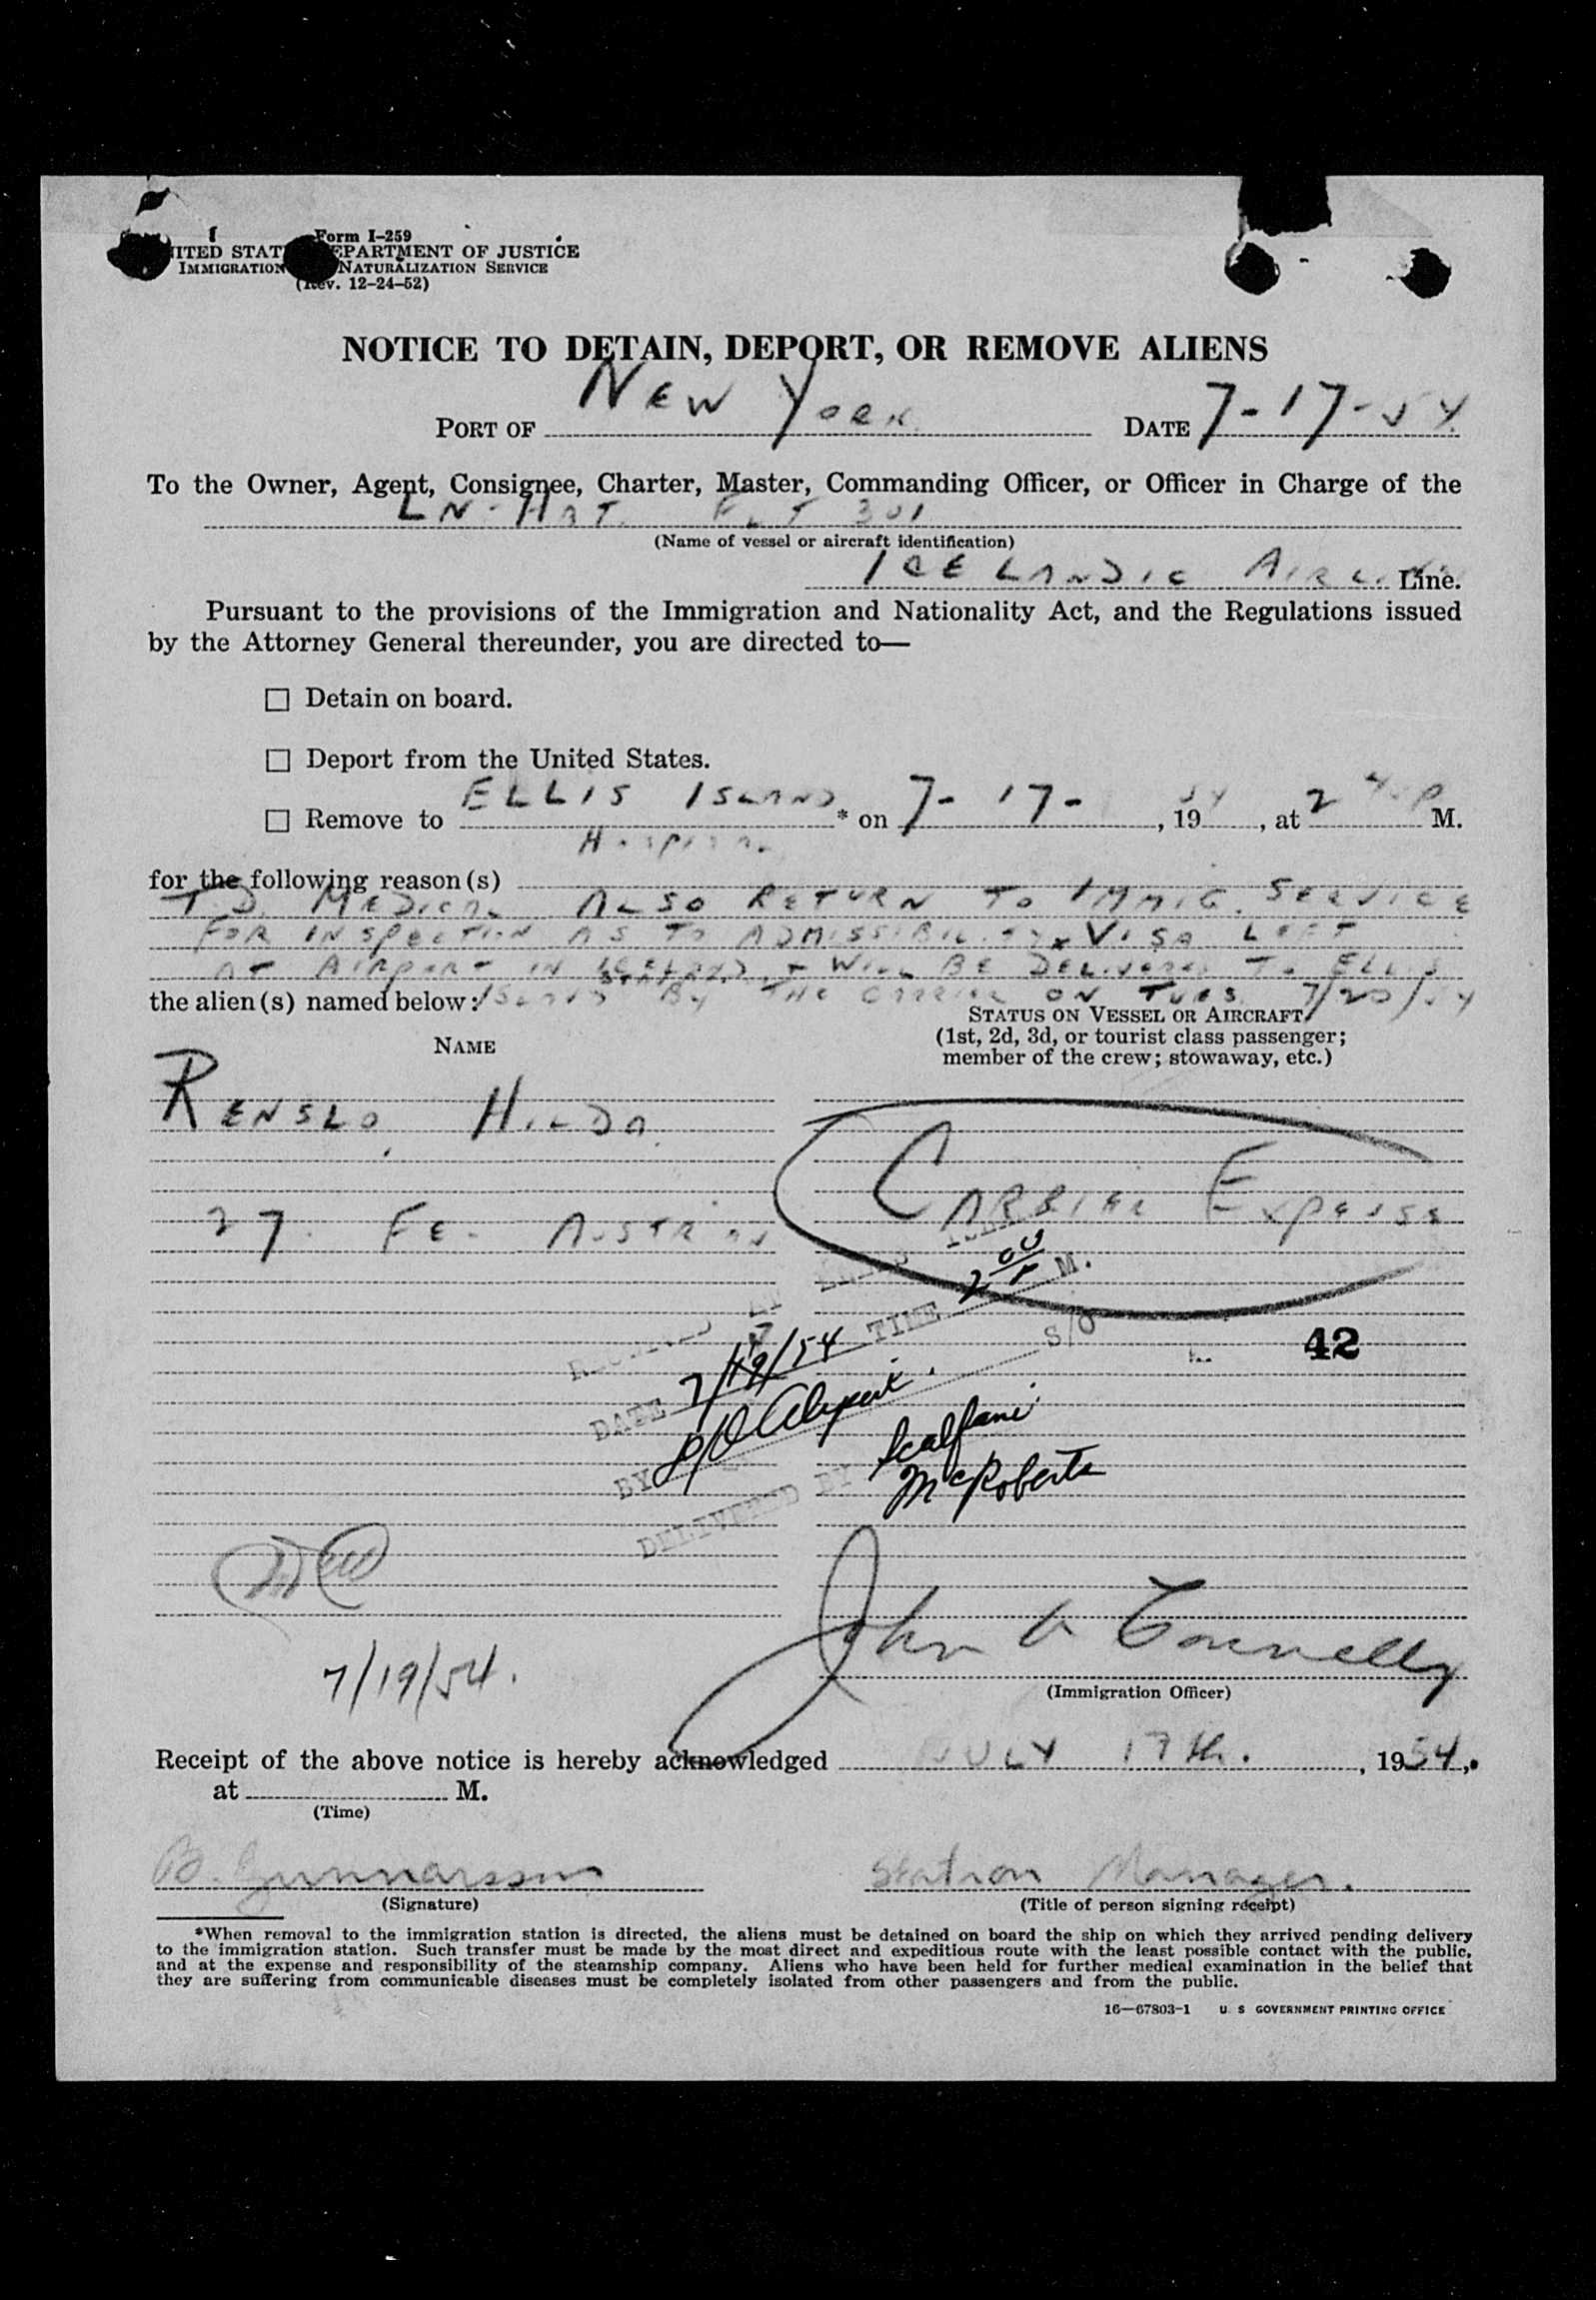 Form I-259
ITED STAT EPARTMENT OF JUSTICE
IMMIGRATION NATURALIZATION SERVICE
(Rev. 12-24-52)
NOTICE TO DETAIN, DEPORT, OR REMOVE ALIENS
PORT OF NEW YORK DATE 7-17-54
To the Owner, Agent, Consignee, Charter, Master, Commanding Officer, or Officer in Charge of the
LN-HAT. FLT 301
(Name of vessel or aircraft identification)
ICELANDIC AIRLINES Line.
Pursuant to the provisions of the Immigration and Nationality Act, and the Regulations issued
by the Attorney General thereunder, you are directed to—
☐ Detain on board.
☐ Deport from the United States.
☐ Remove to ELLIS ISLAND * on 7-17-, 1954, at 2 P M.
HOSPITAL
for the following reason(s)
T.D. MEDICAL ALSO RETURN TO IMMIG. SERVICE
FOR INSPECTION AS TO ADMISSIBILITY. VISA LEFT
AT AIRPORT IN + WILL BE DELIVERED TO ELLIS
the alien(s) named below: ISLAND BY THE CARRIER ON TUES. 7/20/54
STATUS ON VESSEL OR AIRCRAFT
(1st, 2d, 3d, or tourist class passenger;
member of the crew; stowaway, etc.)
NAME
RENSLO, HILDA.
CARRIER EXPENSE
27. FE- AUSTRIAN
RECEIVED AT ELLIS
DATE 7/19/54 TIME 2 00 P M.
S/O
42
BY
DELIVERED BY Scalfani
McRoberts
7/19/54.
John V Connelly
(Immigration Officer)
Receipt of the above notice is hereby acknowledged JULY 17th., 1954.
at M.
(Time)
B. Gunnarsson Station Manager.
(Signature) (Title of person signing receipt)
*When removal to the immigration station is directed, the aliens must be detained on board the ship on which they arrived pending delivery
to the immigration station. Such transfer must be made by the most direct and expeditious route with the least possible contact with the public,
and at the expense and responsibility of the steamship company. Aliens who have been held for further medical examination in the belief that
they are suffering from communicable diseases must be completely isolated from other passengers and from the public.
16—67803-1 U. S GOVERNMENT PRINTING OFFICE